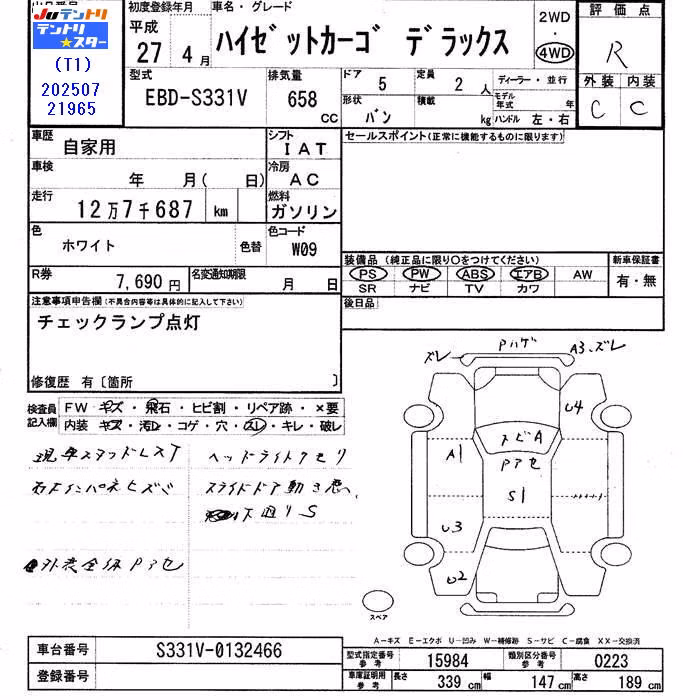 Juテントリ
テントリ
★スター
(T1)
202507
21965
初度登録年月
平成
27 4月
車名・グレード
ハイゼットカーゴ デラックス
2WD
・
4WD
評価点
R
外装 内装
C C
型式
EBD-S331V
排気量
658 CC
ドア 5
定員 2 人
形状 バン
積載 kg
ディーラー・並行
モデル年式 年
ハンドル 左・右
車歴 自家用
シフト IAT
セールスポイント(正常に機能するものに限ります)
車検 年 月( 日)
冷房 AC
走行 12万7千687 km
燃料 ガソリン
色 ホワイト 色替
色コード W09
装備品(純正品に限り○をつけてください)
新車保証書
PS PW ABS エアB AW
SR ナビ TV カワ
有・無
R券 7,690円
名変通知期限 月 日
後日品
注意事項申告欄(不具合内容等は具体的に記入して下さい)
チェックランプ点灯
修復歴 有〔箇所 〕
検査員記入欄
FW キズ・飛石・ヒビ割・リペア跡・×要
内装 キズ・汚レ・コゲ・穴・スレ・キレ・破レ
現車スタッドレスT
ヘッドライトクモリ
スライドドア動き悪
下廻りS
外装全体Pアセ
ズレ
Pハゲ
A3、ズレ
U4
A1
トビA
Pアセ
S1
U3
U2
スペア
A-キズ E-エクボ U-凹み W-補修跡 S-サビ C-腐食 XX-交換済
車台番号 S331V-0132466
登録番号
型式指定番号参考 15984
類別区分番号参考 0223
車庫証明用参考
長さ 339 cm
幅 147 cm
高さ 189 cm